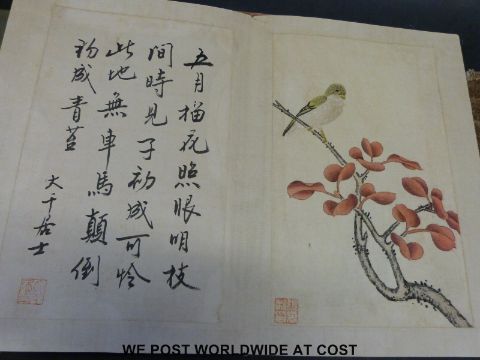 五月榴花照眼明枝
間時見子初成可怜
此地無車馬顛倒
初成青苔
大千居士
WE POST WORLDWIDE AT COST